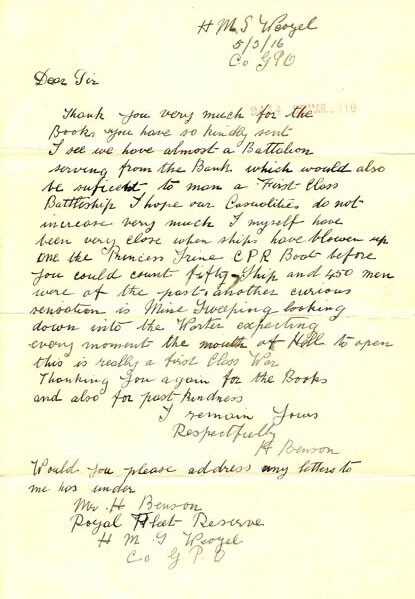 H M S Weazel
5/3/16
Co GPO
Dear Sir
Thank you very much for the
MAR. 916
Books you have so kindly sent
I see we have almost a Battalion
serving from the Bank which would also
be suficent to man a First-Class
Battleship I hope our Casualities do not
increase very much I myself have
been very close when ships have blowen up
one the Princess Irene C.P.R Boat before
you could count fifty Ship and 450 men
were of the past, another curious
sensation is Mine Sweeping looking
down into the Warter expecting
every moment the mouth of Hell to open
this is really a first Class War
Thanking you again for the Books
and also for past kindness
I remain Yours
Respectfully
H Benson
Would you please address any letters to
me has under
Mr H Benson
Royal Fleet Reserve
H M S Weazel
Co G P O